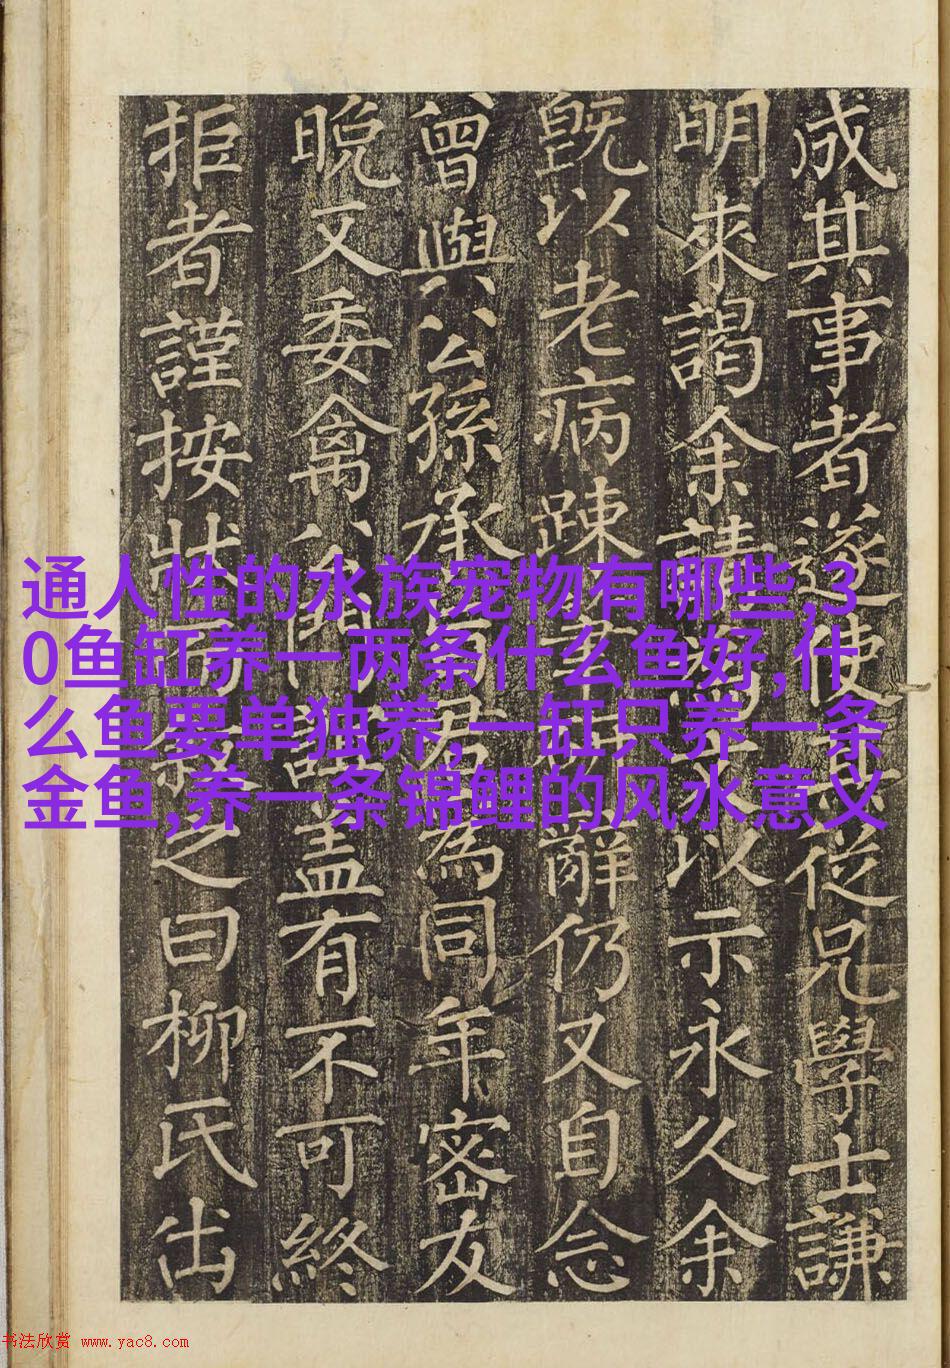 成其事者遂使從兄學士謙
明來謁余請以示永久余
既以老病踈辭仍又自念
曾與公孫承君為同年密友
晚又委禽蓋有不可終
拒者謹按狀之曰柳氏出
通人性的水族宠物有哪些,3
0鱼缸养一两条什么鱼好,什
么鱼要单独养,一缸只养一条
金鱼,养一条锦鲤的风水意义
书法欣赏 www.yac8.com